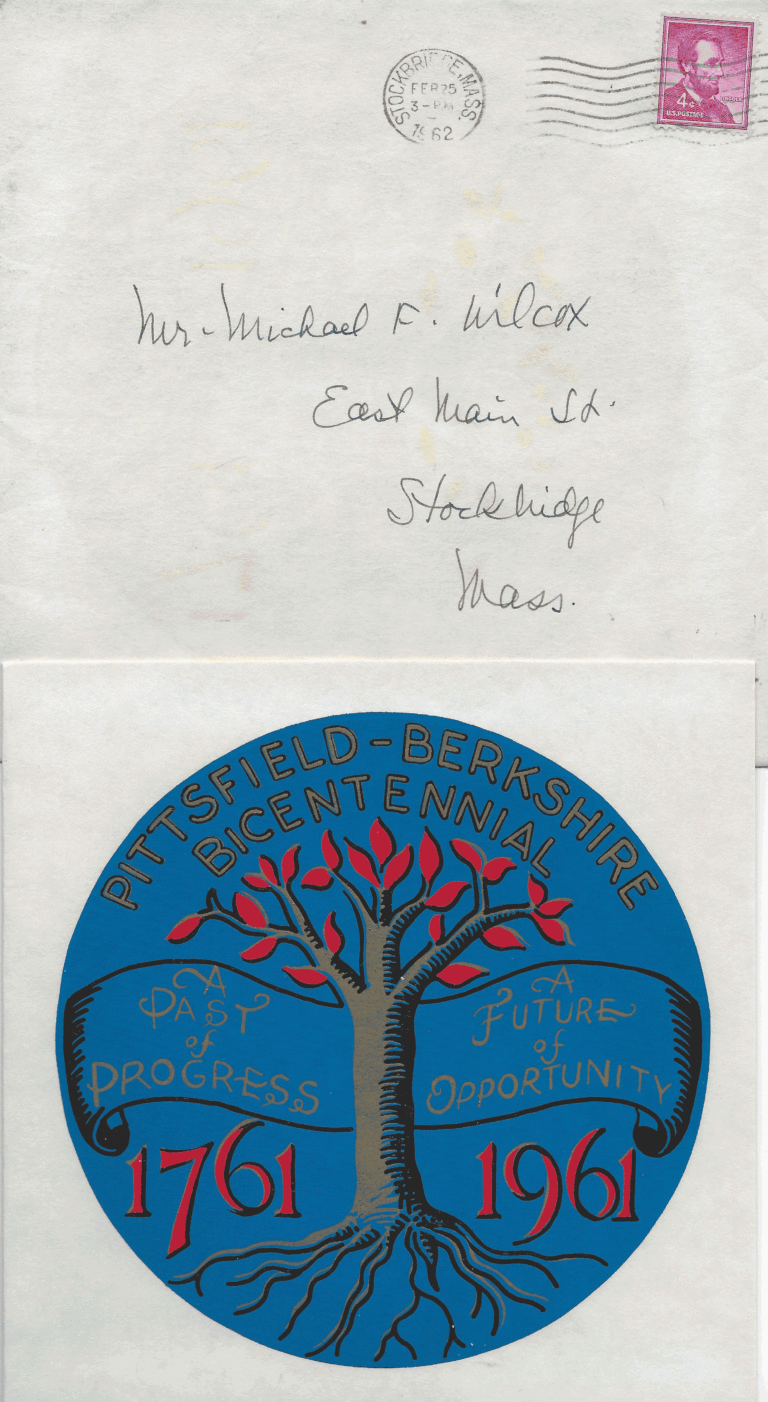 STOCKBRIDGE, MASS.
FEB 25
3 - PM
1962
LINCOLN
4¢
U.S. POSTAGE
Mr. Michael F. Wilcox
East Main St.
Stockbridge
Mass.
PITTSFIELD - BERKSHIRE
BICENTENNIAL
A
PAST
of
PROGRESS
A
FUTURE
of
OPPORTUNITY
1761
1961